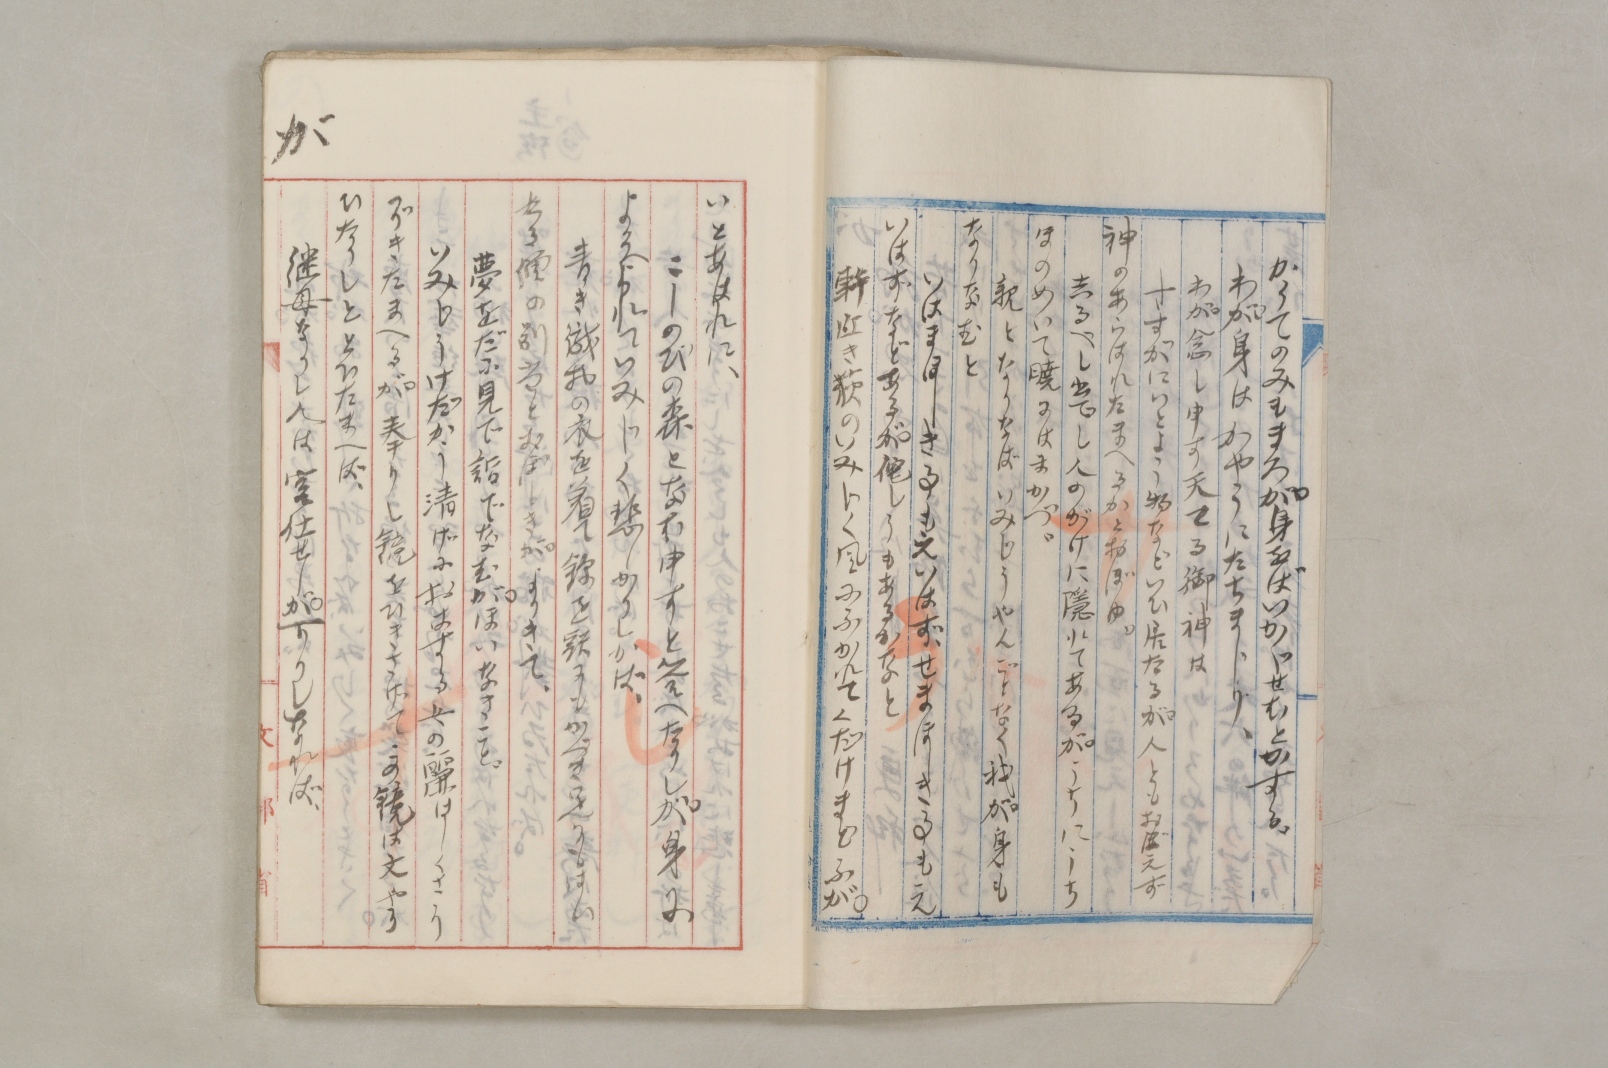 かくてのみもまろが身をばいかゞせむとかする。
わが身はかやうにたちまゝり、
わが念し申す天てる御神は
すずがにいとよう物などいひ居たるが人ともおぼえず
神のあらはれたまへるかとおぼゆ。
去るべし出でし人のかげに隠れてあるがうちにうち
ほのめいて暁にはまかづ。
親となりなばいみじうやんごとなく我が身も
なりなむと
いはまほしき事もえいはずせまほしき事もえ
いはずなどあるが侘しうもあるかなと
軒近き荻のいみじく風にふかれてくだけまどふが。
いとあはれに、
こしのびの森となむ申すと答へたりしが身に
よそへられていみじく悲しかりしかば、
青き織物の衣を着て錦を頭にもかづき足にもはい
夢をだに見で詣でなむがほいなきこと。
いみじうけだかう清げにおはする女の麗はしくさう
ぞきたまへるが奉りし鏡をひきさげてこの鏡は文やう
ひたりしととひたまへば、
が
継母なりし人は宮仕せしが下りしなれば、
文部省